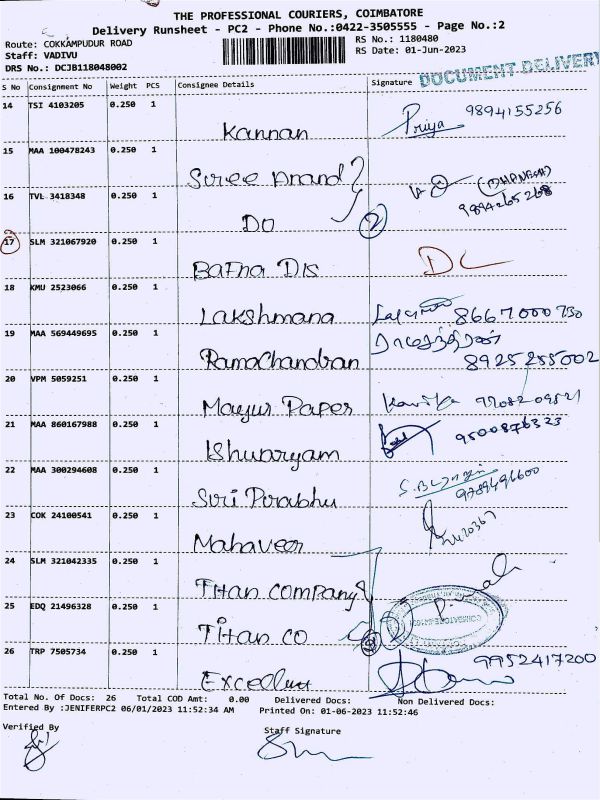 THE PROFESSIONAL COURIERS, COIMBATORE
Delivery Runsheet - PC2 - Phone No.:0422-3505555 - Page No.:2
Route: COKKAMPUDUR ROAD
RS No.: 1180480
Staff: VADIVU
RS Date: 01-Jun-2023
DRS No.: DCJB118048002
DOCUMENT DELIVERY
S No Consignment No Weight PCS Consignee Details Signature
14 TSI 4103205 0.250 1
Kannan Priya 9894155256
15 MAA 100478243 0.250 1
Sree Anand
16 TVL 3418348 0.250 1
DO 2 9894265268
17 SLM 321067920 0.250 1
Bafna Dis DL
18 KMU 2523066 0.250 1
Lakshmana 8667000730
19 MAA 569449695 0.250 1
RamaChandran ராமசந்திரன் 8925255002
20 VPM 5059251 0.250 1
Mayur Paper
21 MAA 860167988 0.250 1
Ishwaryam 9500876323
22 MAA 300294608 0.250 1
Siri Prabhu 9789496600
23 COK 24100541 0.250 1
Mahaveer
24 SLM 321042335 0.250 1
Titan Company
25 EDQ 21496328 0.250 1
Titan Co
26 TRP 7505734 0.250 1
9952417200
Total No. Of Docs: 26 Total COD Amt: 0.00 Delivered Docs: Non Delivered Docs:
Entered By :JENIFERPC2 06/01/2023 11:52:34 AM Printed On: 01-06-2023 11:52:46
Verified By
Staff Signature